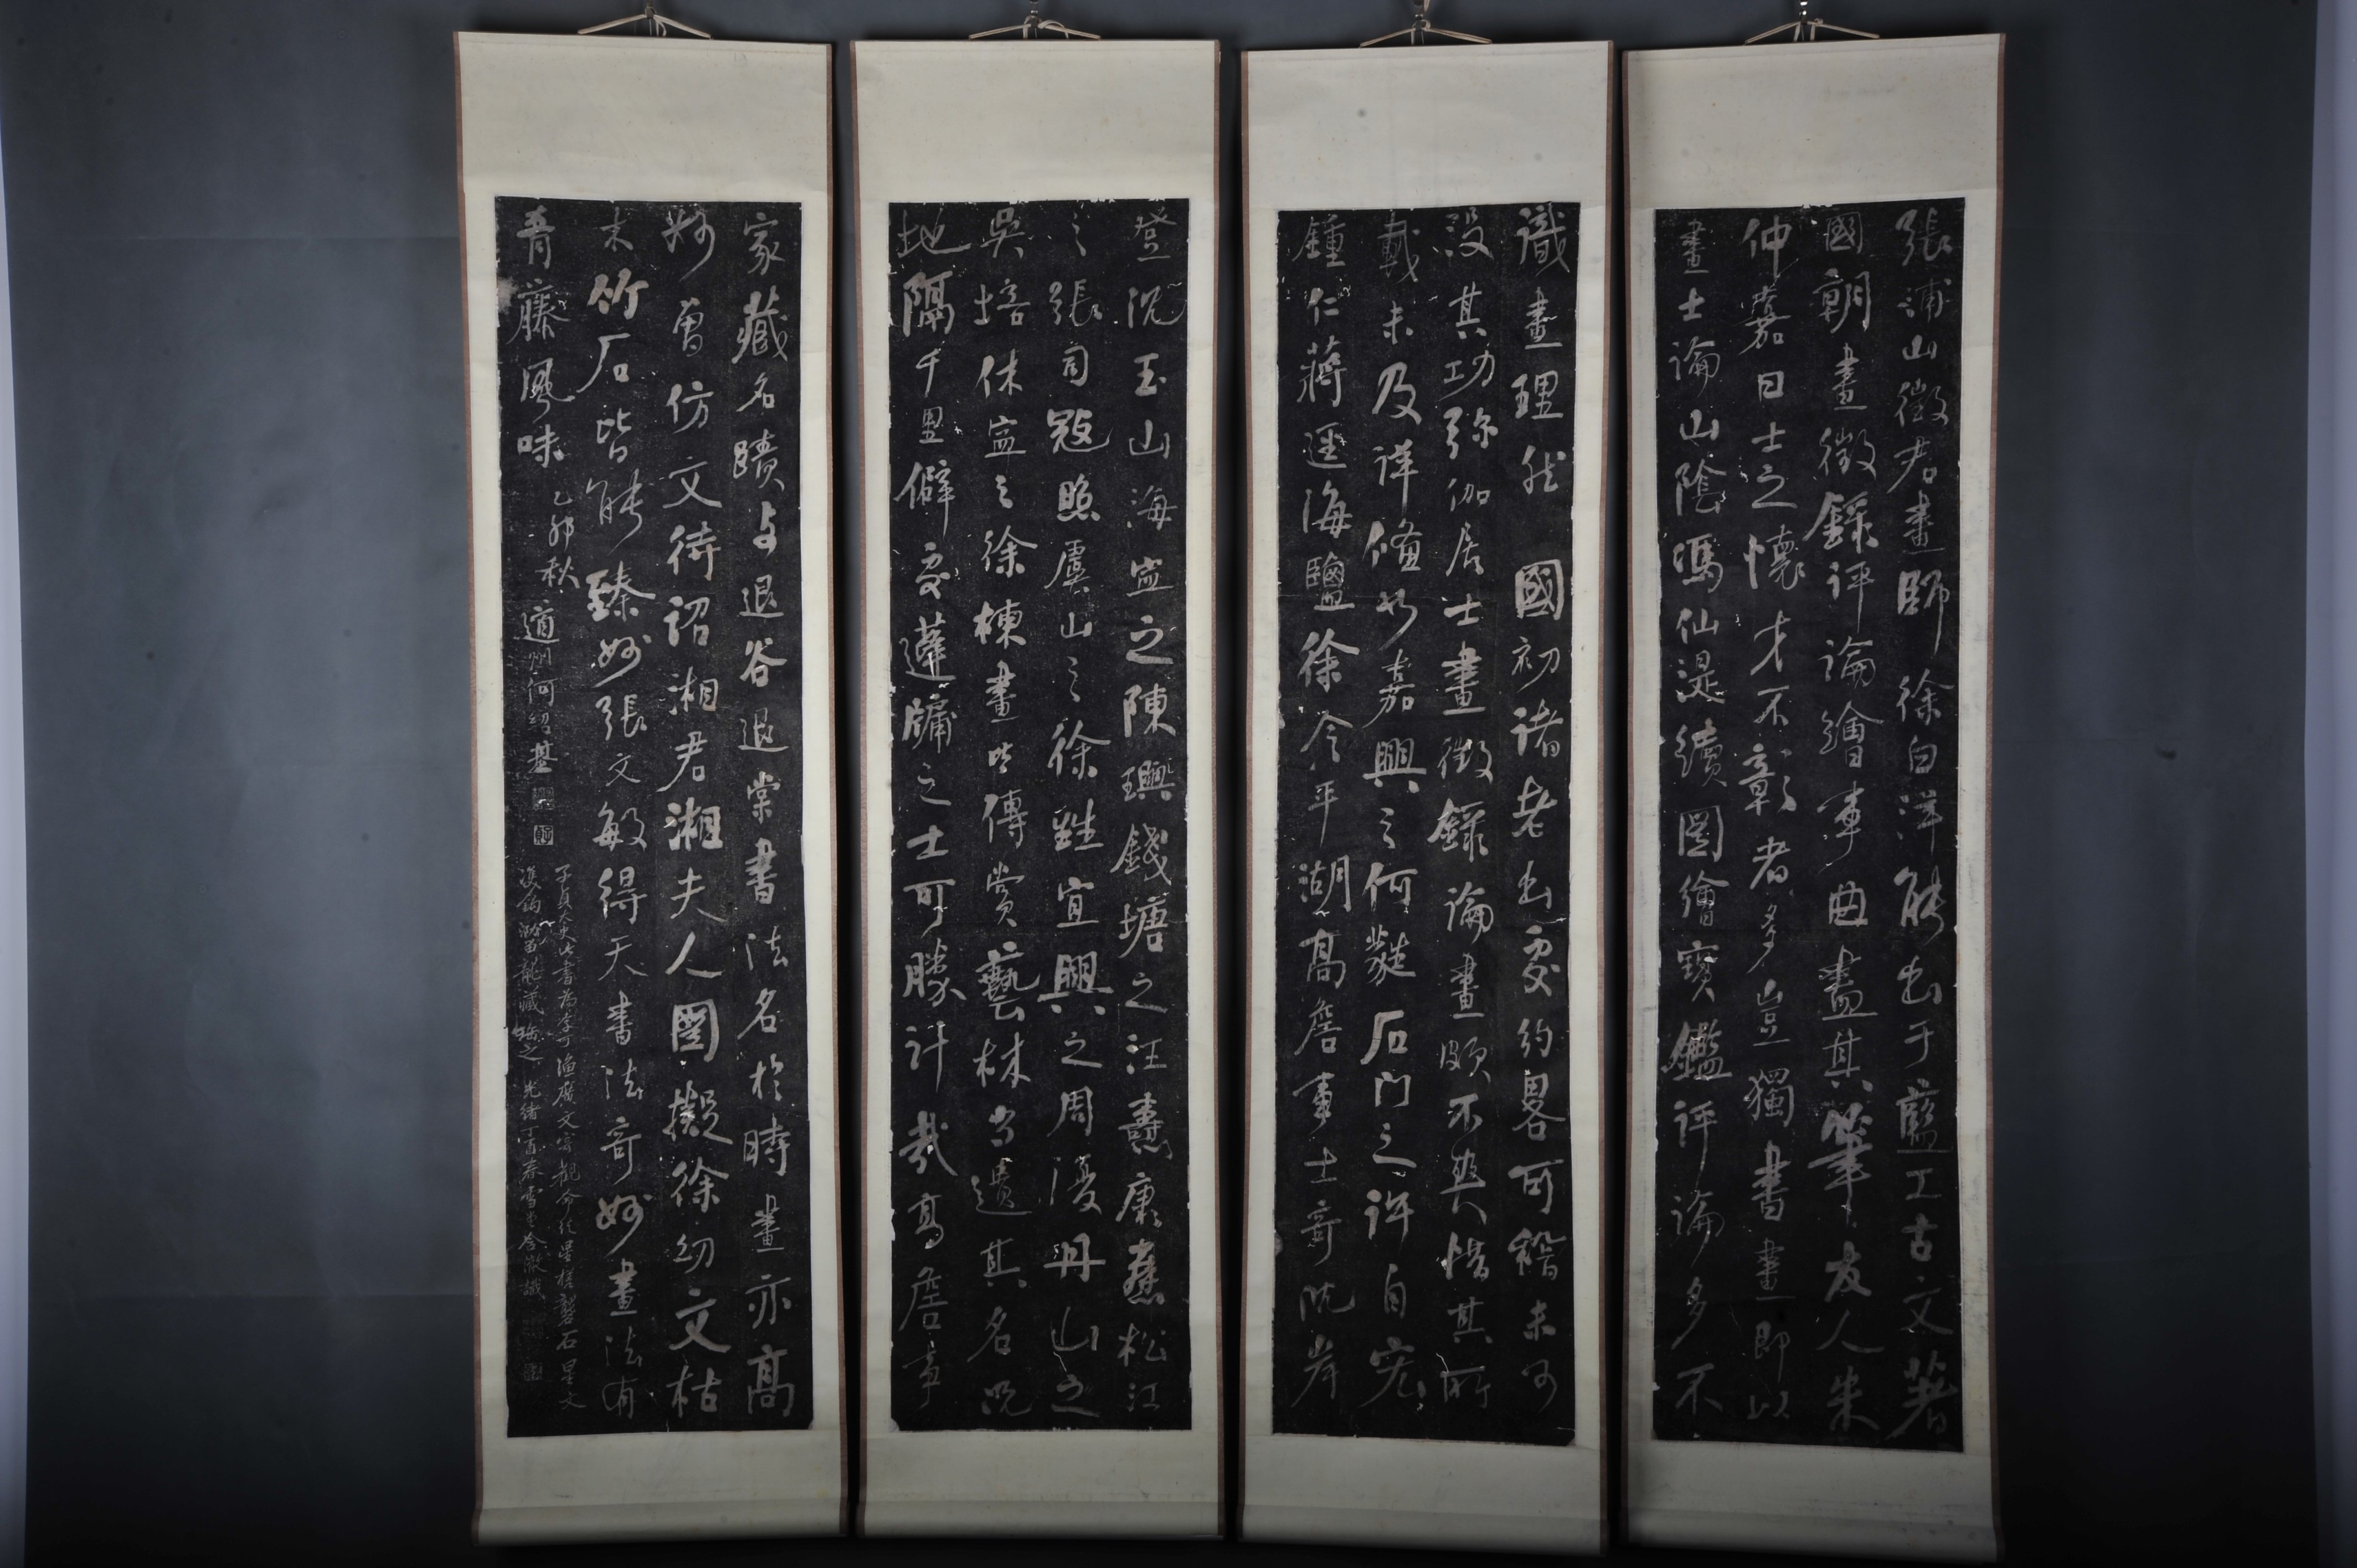 張浦山徵君畫師徐白洋能出于藍工古文著
國朝畫徵錄評論繪事曲盡其筆友人朱
仲嘉曰士之懷才不彰者多豈獨書畫即以
畫士論山陰馮仙湜續圖繪寶鑑評論多不
識畫理然 國初諸老出處約畧可稽未可
沒其功弥伽居士畫徵錄論畫頗不爽惜其所
載未及詳備如嘉興之何蕤石門之許自宏
鍾仁蔣逕海鹽徐令平湖高詹事士奇沈岸
登沈玉山海寍之陳璵錢塘之汪壽康燾松江
之張司寇照虞山之徐甡宜興之周濩丹山之
吳培休寍之徐棟畫皆傳賞藝林當遺其名況
地隔千里僻處蓬牖之士可勝計哉高詹事
家藏名蹟与退谷退棠書法名於時畫亦高
妙曾仿文待詔湘君湘夫人圖擬徐幼文枯
木竹石皆能臻妙張文敏得天書法奇妙畫法有
青藤風味
乙卯秋
道州何紹基
子貞太史此書為李可漁廣文家觀命從星槎磬石星文
雙鉤 龍藏 之光緒丁酉春雪堂 識